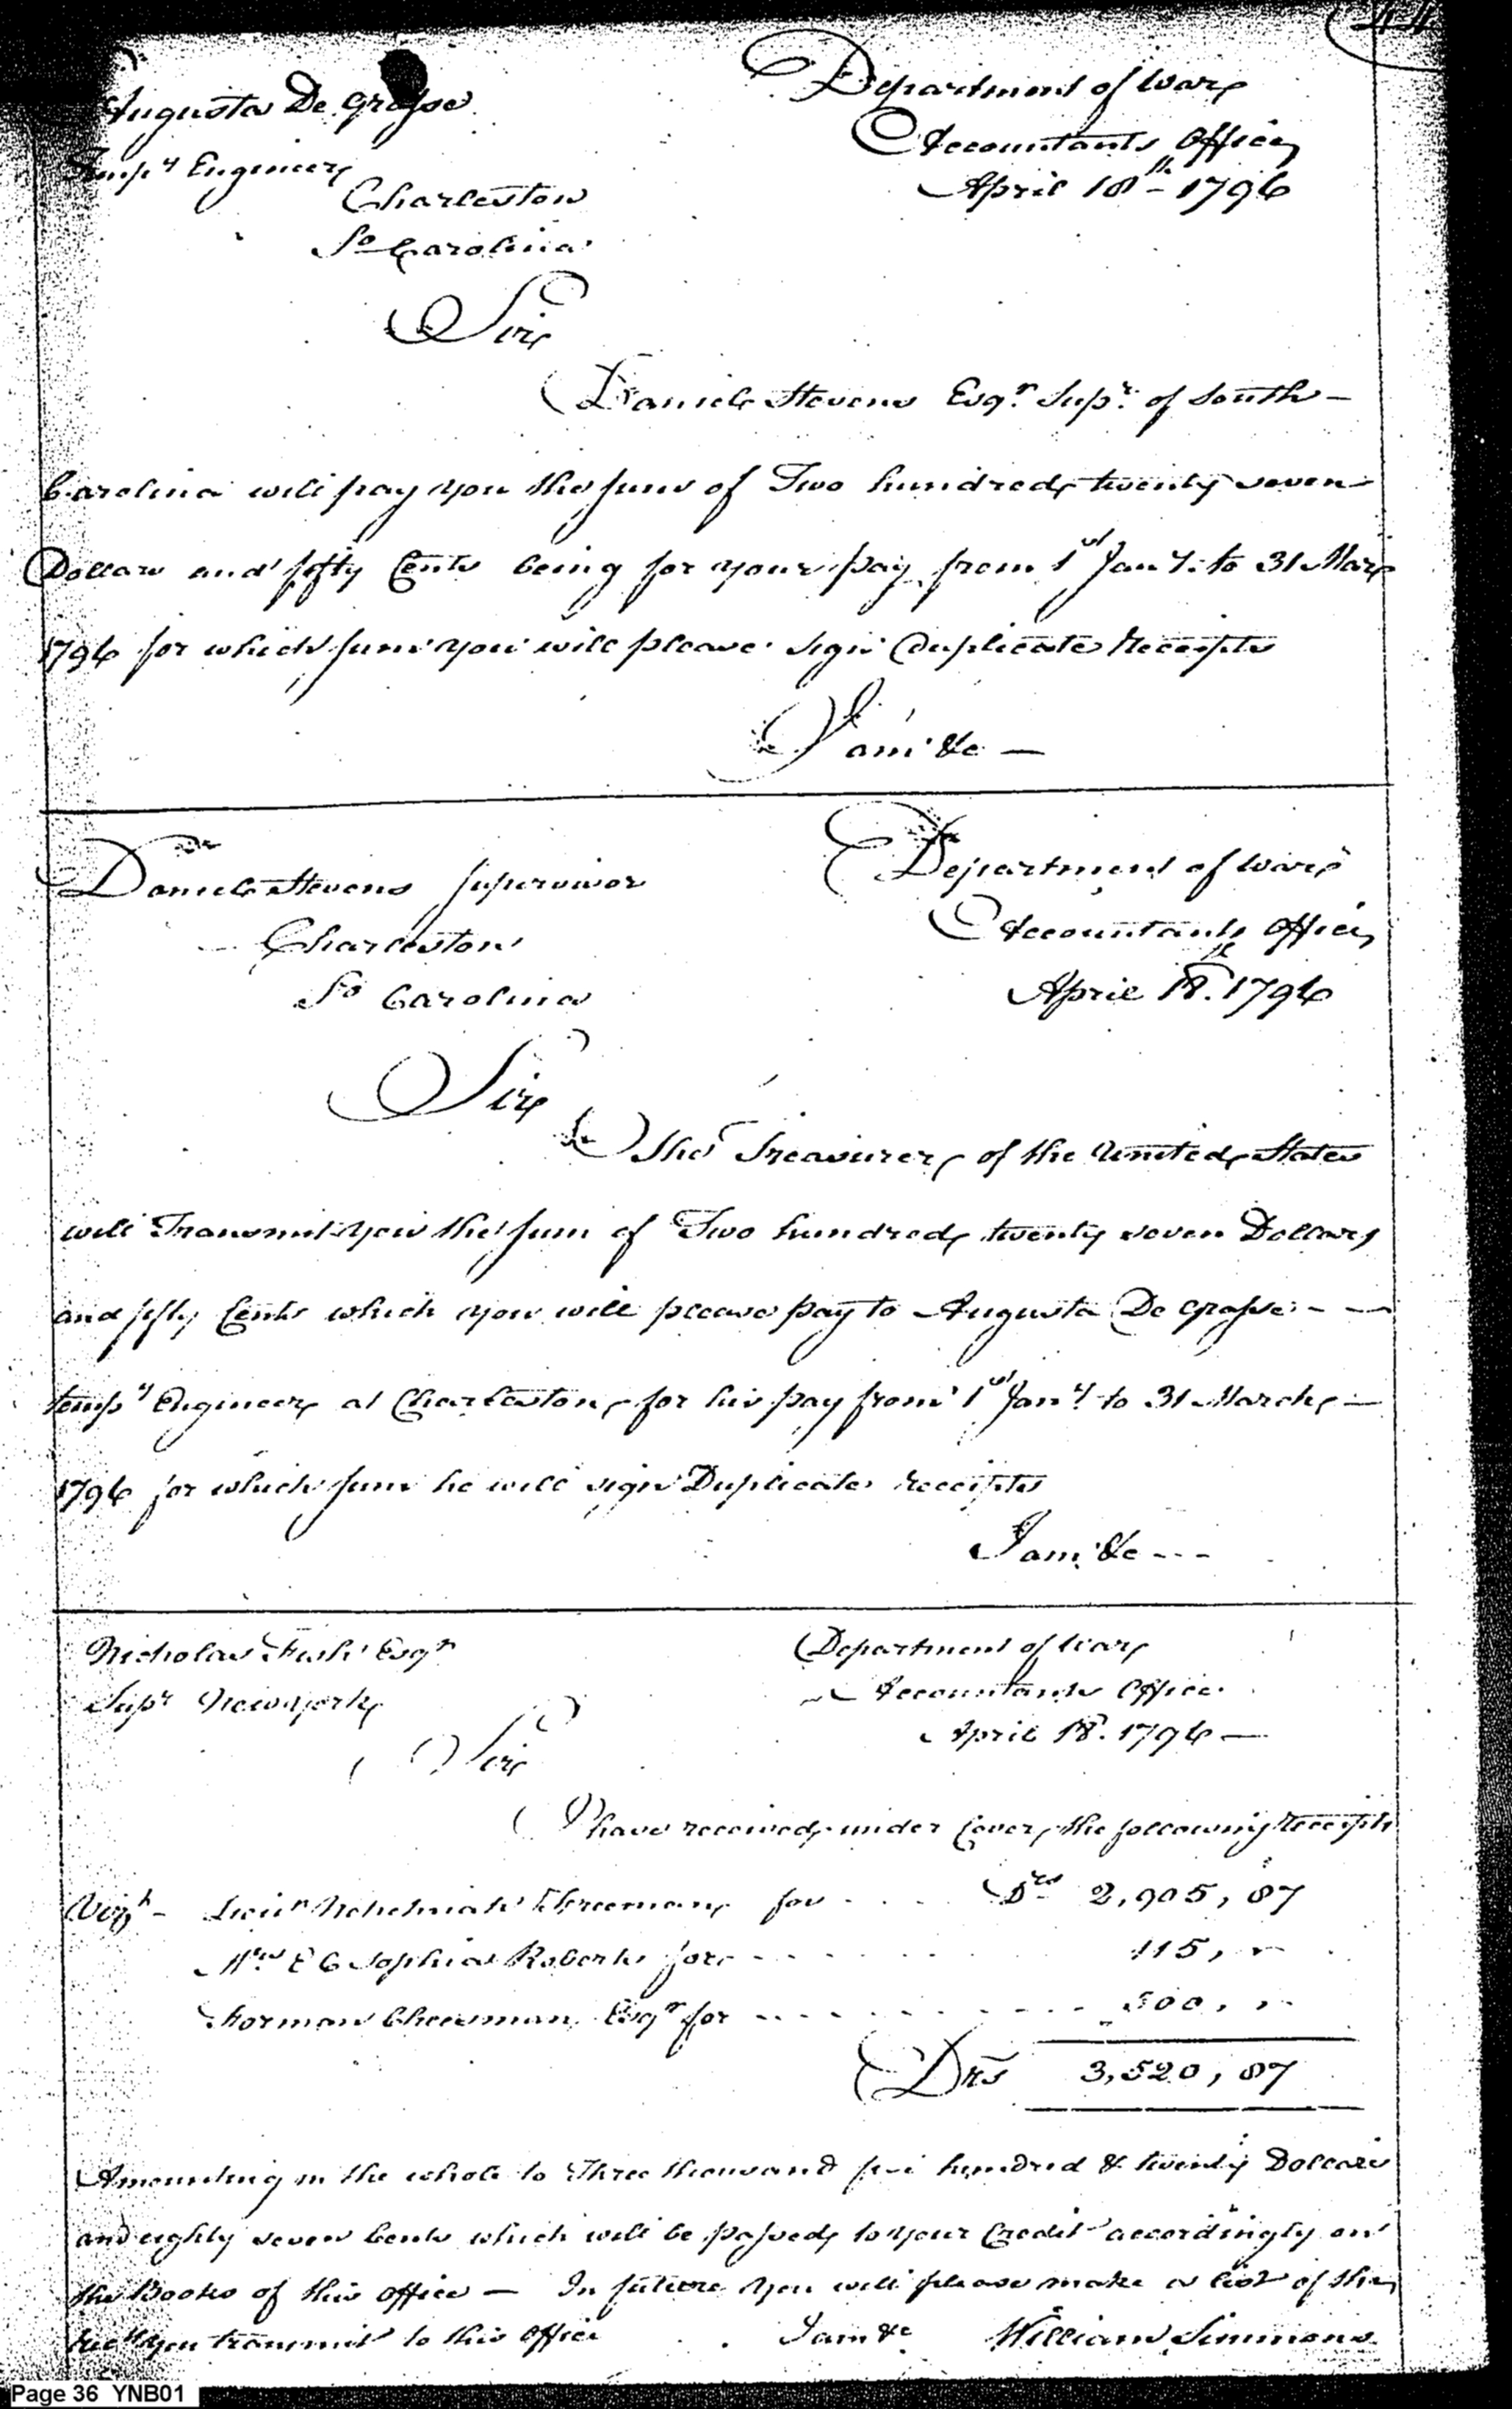 44
Augusta De Grasse
Tempy Engineer
Charleston
So Carolina
Department of War
Accountants Office
April 18th 1796
Sir
Daniel Stevens Esqr. Supr. of South
Carolina will pay you the sum of Two hundred twenty seven
Dollars and fifty Cents being for your pay from 1st Jany. to 31 Mar
1796 for which sum you will please sign Duplicate Receipts
I am &c —
Daniel Stevens Supervisor
Charleston
So Carolina
Department of War
Accountants Office
April 18th. 1796
Sir
The Treasurer of the United States
will Transmit you the sum of Two hundred twenty seven Dollars
and fifty Cents which you will please pay to Augusta De Grasse - -
tempy Engineer at Charleston for his pay from 1st Jany. to 31 March —
1796 for which sum he will sign Duplicate receipts
I am &c - - -
Nicholas Fish Esqr
Supr Newyork
Department of War
Accountants Office
April 18. 1796 —
Sir
I have received under Cover the following receipts
Vizt - Lieut Nehemiah Freeman for . . . . Drs 2,905, 87
Mrs E C Sophia Roberts for - - - - - 115, -
Forman Cheesman Esqr for - - - - - 500, -
Drs 3,520, 87
Amounting in the whole to Three thousand five hundred & twenty Dollars
and eighty seven Cents which will be passed to your Credit accordingly on
the Books of this office — In future you will please make a list of the
rects you transmit to this office I am &c William Simmons
Page 36 YNB01